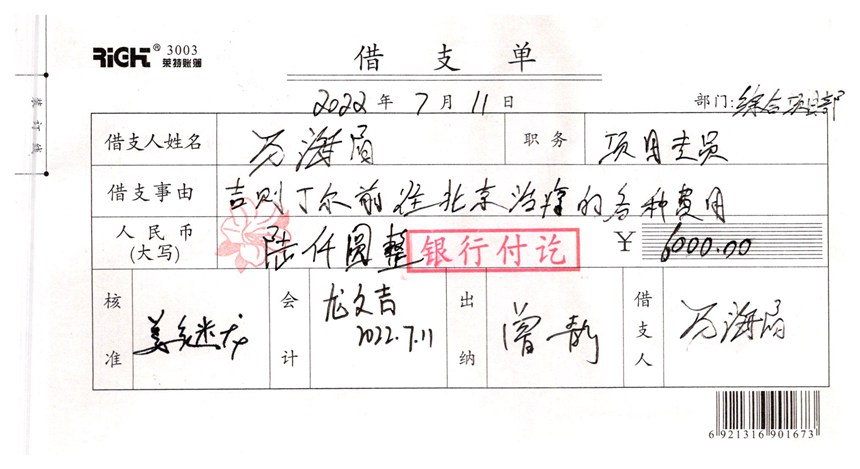 RiGHT® 3003
莱特账簿
借支单
装订线
2022年7月11日 部门:综合项目部
借支人姓名 万海眉 职务 项目专员
借支事由 吉则丁尔前往北京治疗的各种费用
人民币(大写) 陆仟圆整 ¥ 6000.00
银行付讫
核准 姜继龙 会计 尤文吉 出纳 曾静 借支人 万海眉
2022.7.11
6 921316 901673